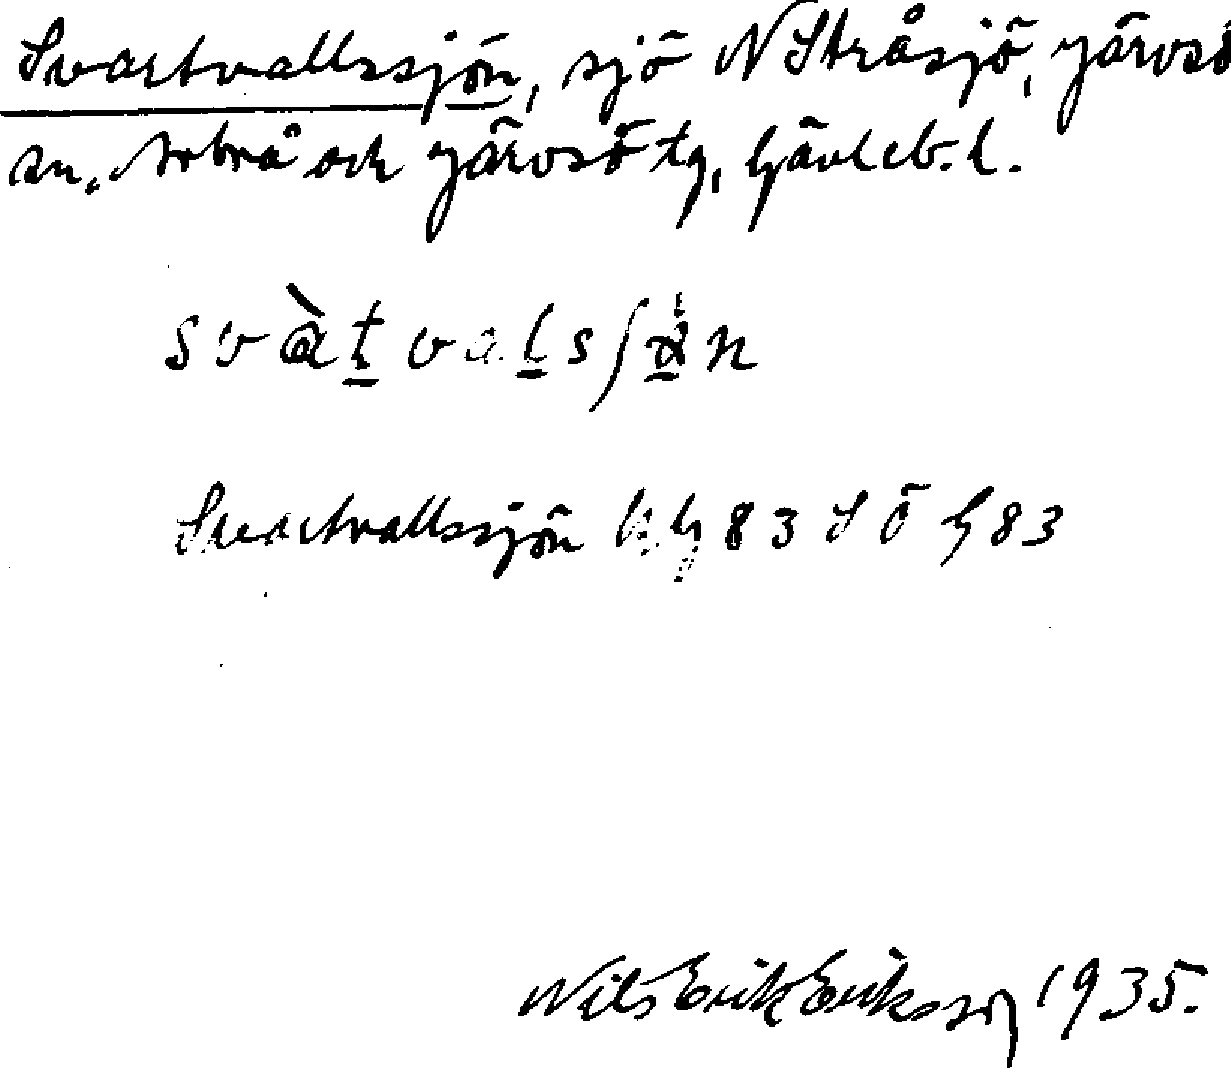 Svartvallssjön, sjö N Stråsjö, Järvsö
sn. Arbrå och Järvsö tg, Gävleb. l.
Svartvallssjön 83 S Ö G 83
Nils Erik Eriksson 1935.